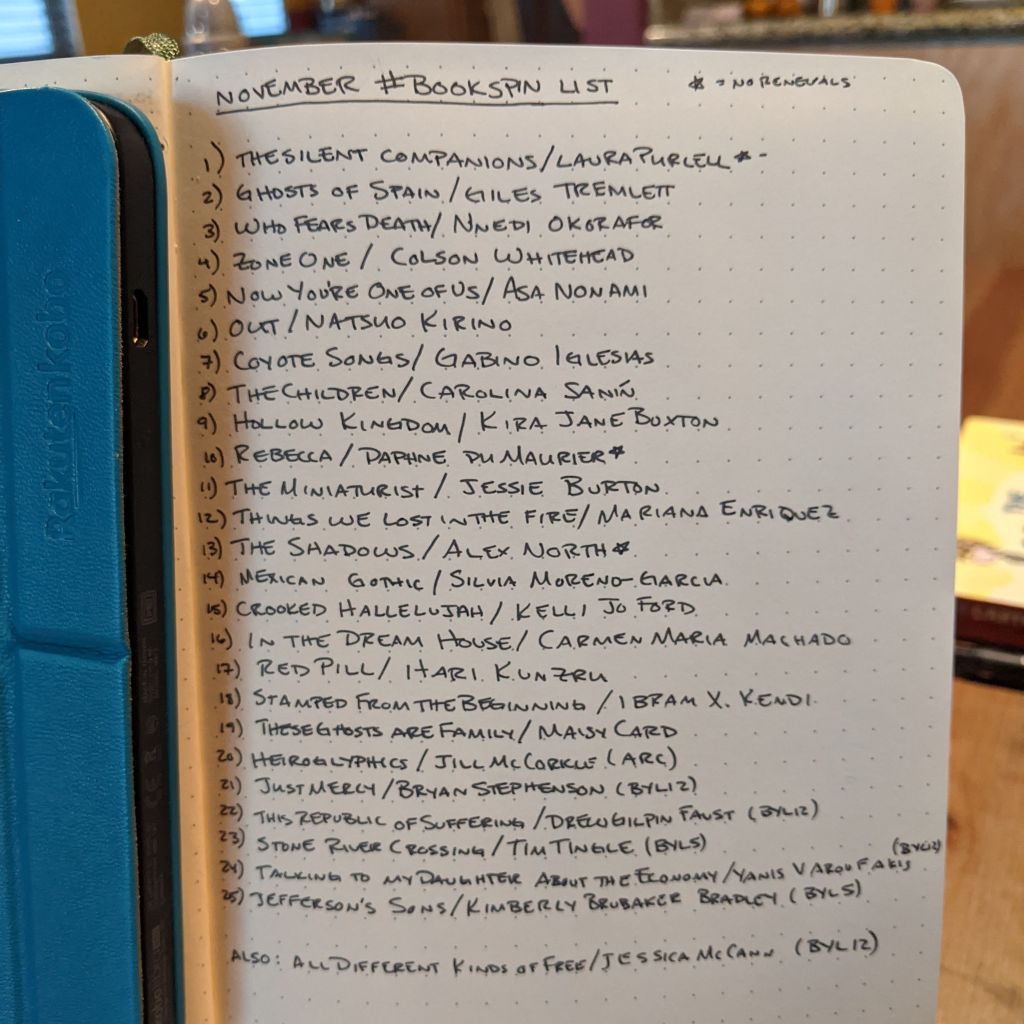 NOVEMBER #BOOKSPIN LIST
* = NO RENEWALS
1) THE SILENT COMPANIONS/LAURA PURCELL * -
2) GHOSTS OF SPAIN/GILES TREMLETT
3) WHO FEARS DEATH/ NNEDI OKORAFOR
4) ZONE ONE / COLSON WHITEHEAD
5) NOW YOU'RE ONE OF US/ ASA NONAMI
6) OUT/NATSUO KIRINO
7) COYOTE SONGS/ GABINO IGLESIAS
8) THE CHILDREN/ CAROLINA SANÍN
9) HOLLOW KINGDOM/ KIRA JANE BUXTON
10) REBECCA/ DAPHNE DU MAURIER *
11) THE MINIATURIST / JESSIE BURTON
12) THINGS WE LOST IN THE FIRE/ MARIANA ENRIQUEZ
13) THE SHADOWS/ALEX NORTH *
14) MEXICAN GOTHIC/ SILVIA MORENO-GARCIA
15) CROOKED HALLELUJAH / KELLI JO FORD
16) IN THE DREAM HOUSE/ CARMEN MARIA MACHADO
17) RED PILL/ HARI KUNZRU
18) STAMPED FROM THE BEGINNING / IBRAM X. KENDI
19) THESE GHOSTS ARE FAMILY/ MAISY CARD
20) HEIROGLYPHICS / JILL MCCORKLE (ARC)
21) JUST MERCY/BRYAN STEPHENSON (BYL12)
22) THIS REPUBLIC OF SUFFERING/DREW GILPIN FAUST (BYL12)
23) STONE RIVER CROSSING/TIM TINGLE (BYL5)
(BYL12)
24) TALKING TO MY DAUGHTER ABOUT THE ECONOMY/YANIS VAROUFAKIS
25) JEFFERSON'S SONS/KIMBERLY BRUBAKER BRADLEY (BYL5)
ALSO: ALL DIFFERENT KINDS OF FREE/JESSICA MCCANN (BYL12)
Rakuten kobo